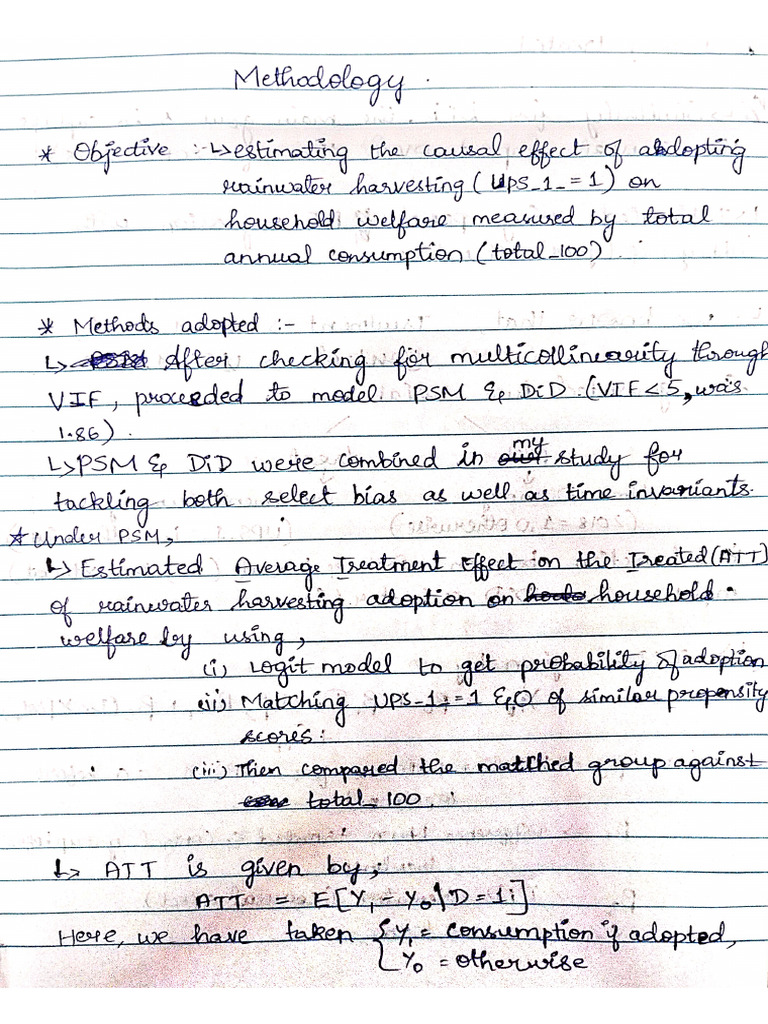 Methodology.
* Objective :- ↳ estimating the causal effect of adopting
rainwater harvesting (UPS_1_=1) on
household welfare measured by total
annual consumption (total_100)
* Methods adopted :-
↳ After checking for multicollinearity through
VIF, proceeded to model PSM & DiD (VIF<5, was
1.86).
↳ PSM & DiD were combined in my study for
tackling both select bias as well as time invariants.
* Under PSM,
↳ Estimated Average Treatment Effect on the Treated (ATT)
of rainwater harvesting adoption on household
welfare by using,
(i) Logit model to get probability of adoption
(ii) Matching UPS_1_=1 & 0 of similar propensity
scores.
(iii) Then compared the matched group against
total_100.
↳ ATT is given by,
ATT = E[Y₁ - Y₀ | D=1]
Here, we have taken { Y₁ = consumption if adopted,
Y₀ = otherwise